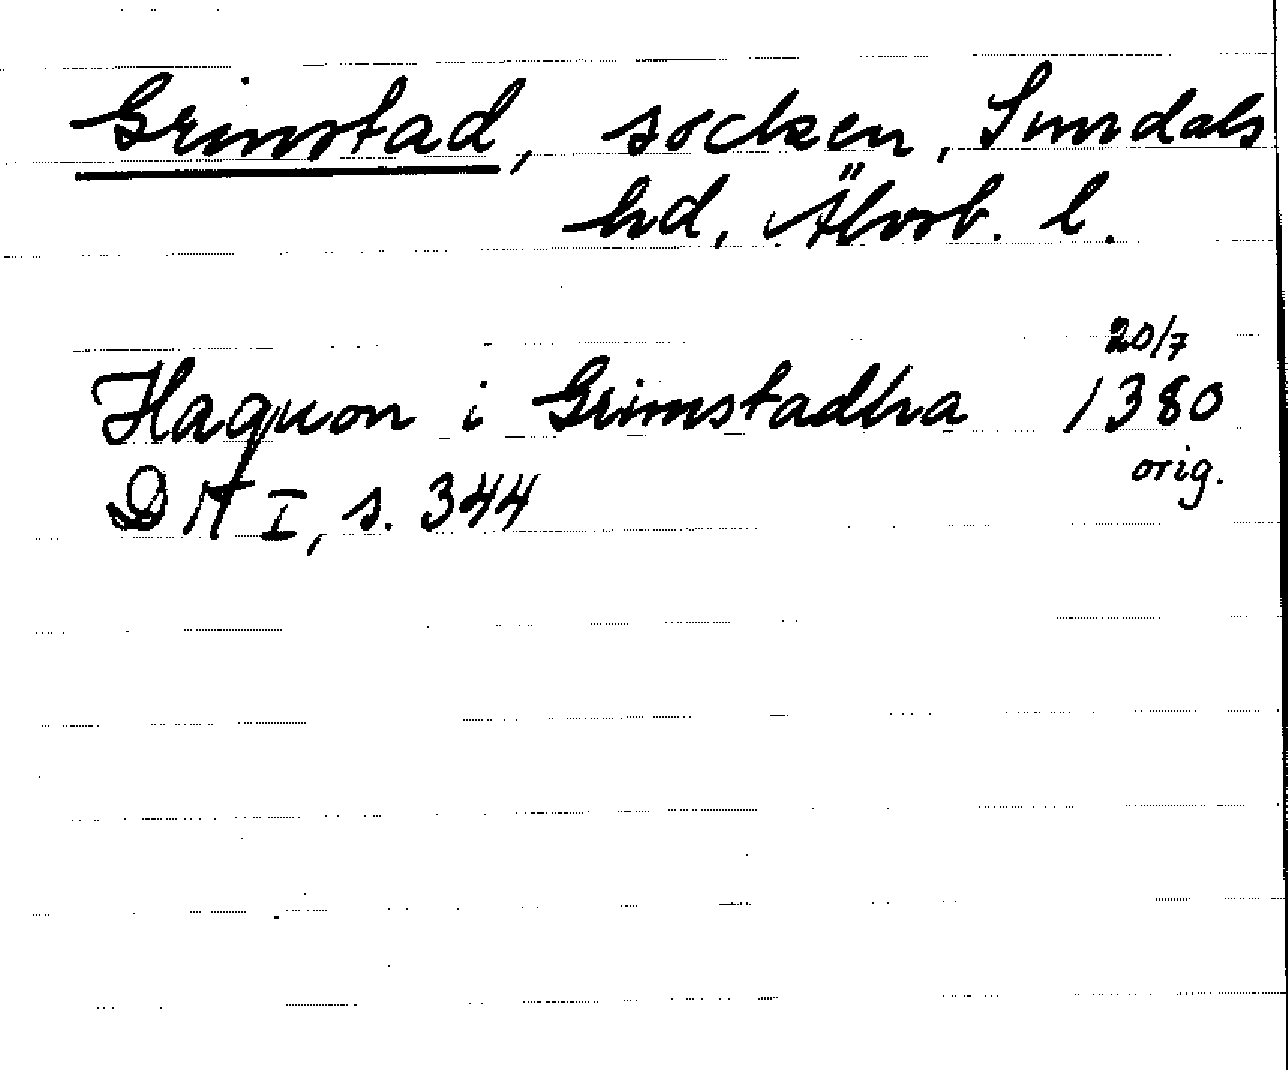 Grinstad, socken, Sundals
hd, Älvsb. l.
20/7
Haquon i Grimstadha 1380
orig.
DN I, s. 344